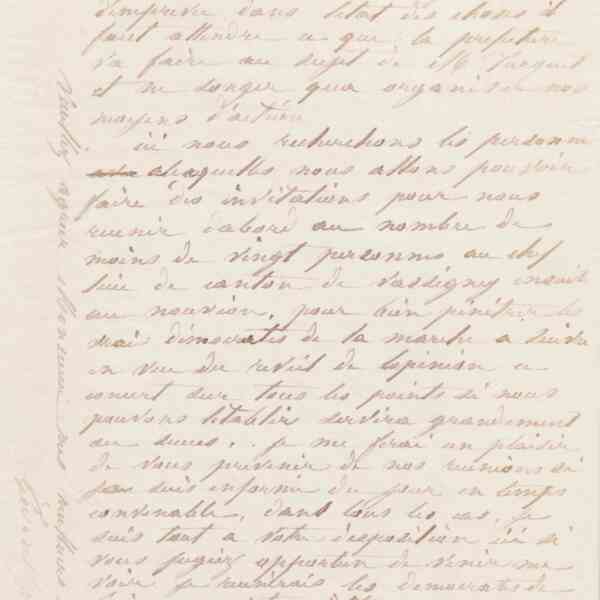 dimprevu dans létat des choses il
faut attendre a que la prefecture
va faire au sujet de M. Turquet
et ne songer qua organiser nos
moyens d'action
ici nous recherchons les personne
auxquelles nous allons pouvoir
faire des invitations pour nous
reunir d'abord au nombre de
moins de vingt personnes au chef
lieu de canton de Vassigny ensuite
au nouvion, pour bien pénétrer les
vrais démocrates de la marche a suivre
en vue du reveil de lopinion ce
concert sur tous les points si nous
pouvons létablir servira grandement
au succes.. je me ferai un plaisir
de vous prevenir de nos reunions si
suis informé du jour en temps
convenable, dans tous les cas, je
suis tout a votre disposition ici si
vous jugiez opportun de venir me
voir je reunirais les democrates de
Veuillez agreer Monsieur mes meilleurs